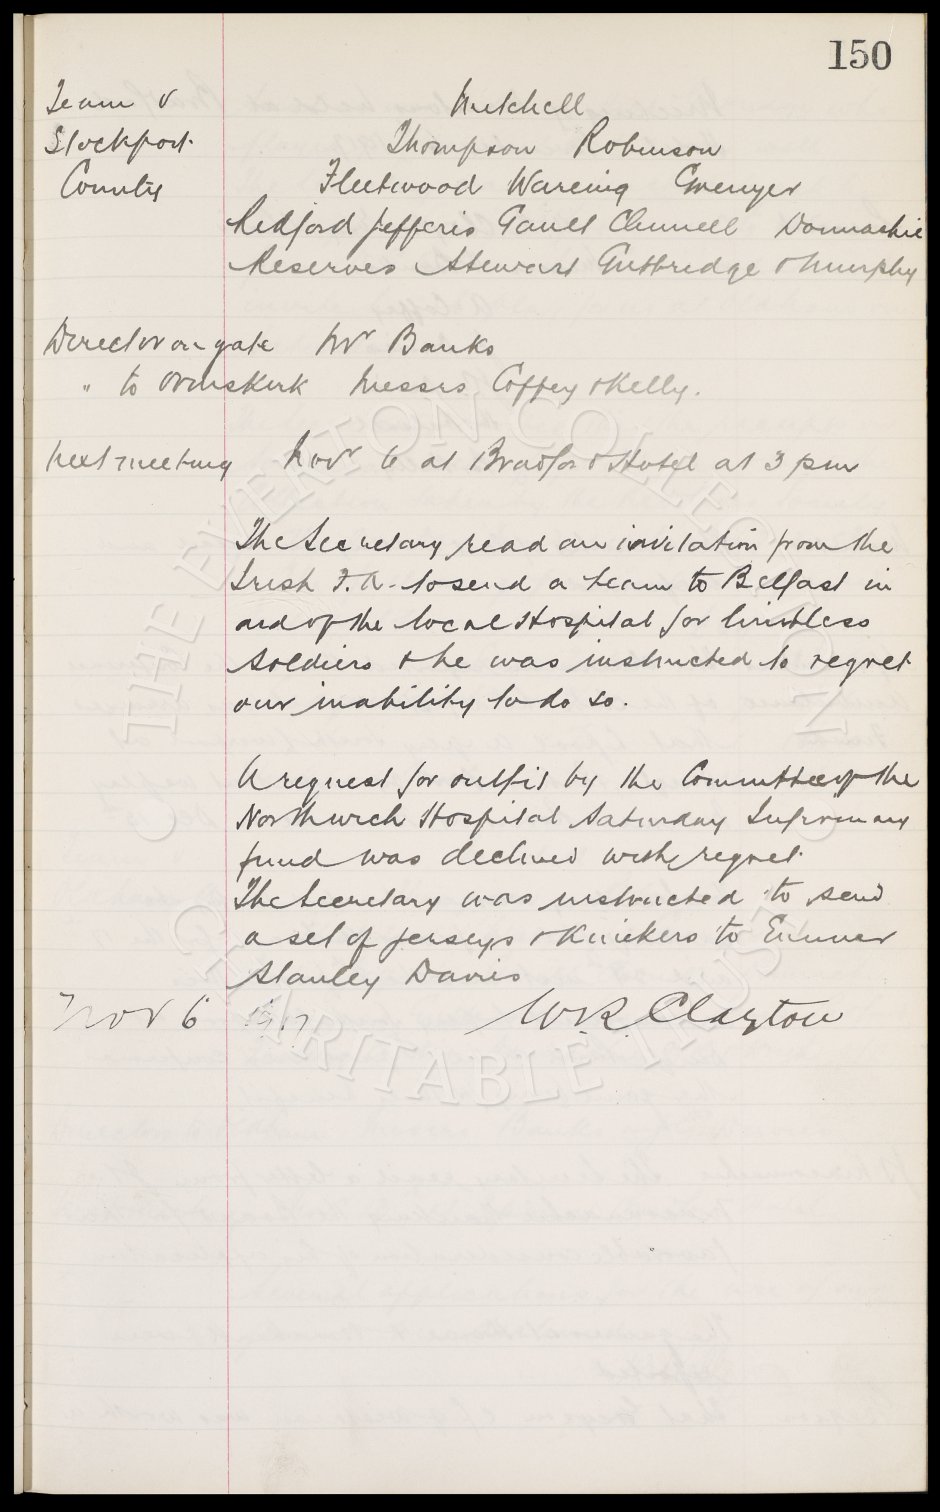 150
Team v Mitchell
Stockport Thompson Robinson
County Fleetwood Wareing Grenyer
Redford Jefferis Gault Clennell Donnachie
Reserves Stewart Gutteridge & Murphy
Director on gate Mr Banks
" to Ormskirk Messrs Coffey & Kelly.
Next meeting Novr 6 at Bradford Hotel at 3 pm
The Secretary read an invitation from the
Irish F.A. to send a team to Belfast in
aid of the local Hospital for limbless
Soldiers & he was instructed to regret
our inability to do so.
A request for outfit by the Committee of the
Northwich Hospital Saturday Infirmary
fund was declined with regret.
The Secretary was instructed to send
a set of jerseys & knickers to
Stanley Davies
Nov 6 1917 W.R. Clayton
© THE EVERTON COLLECTION CHARITABLE TRUST